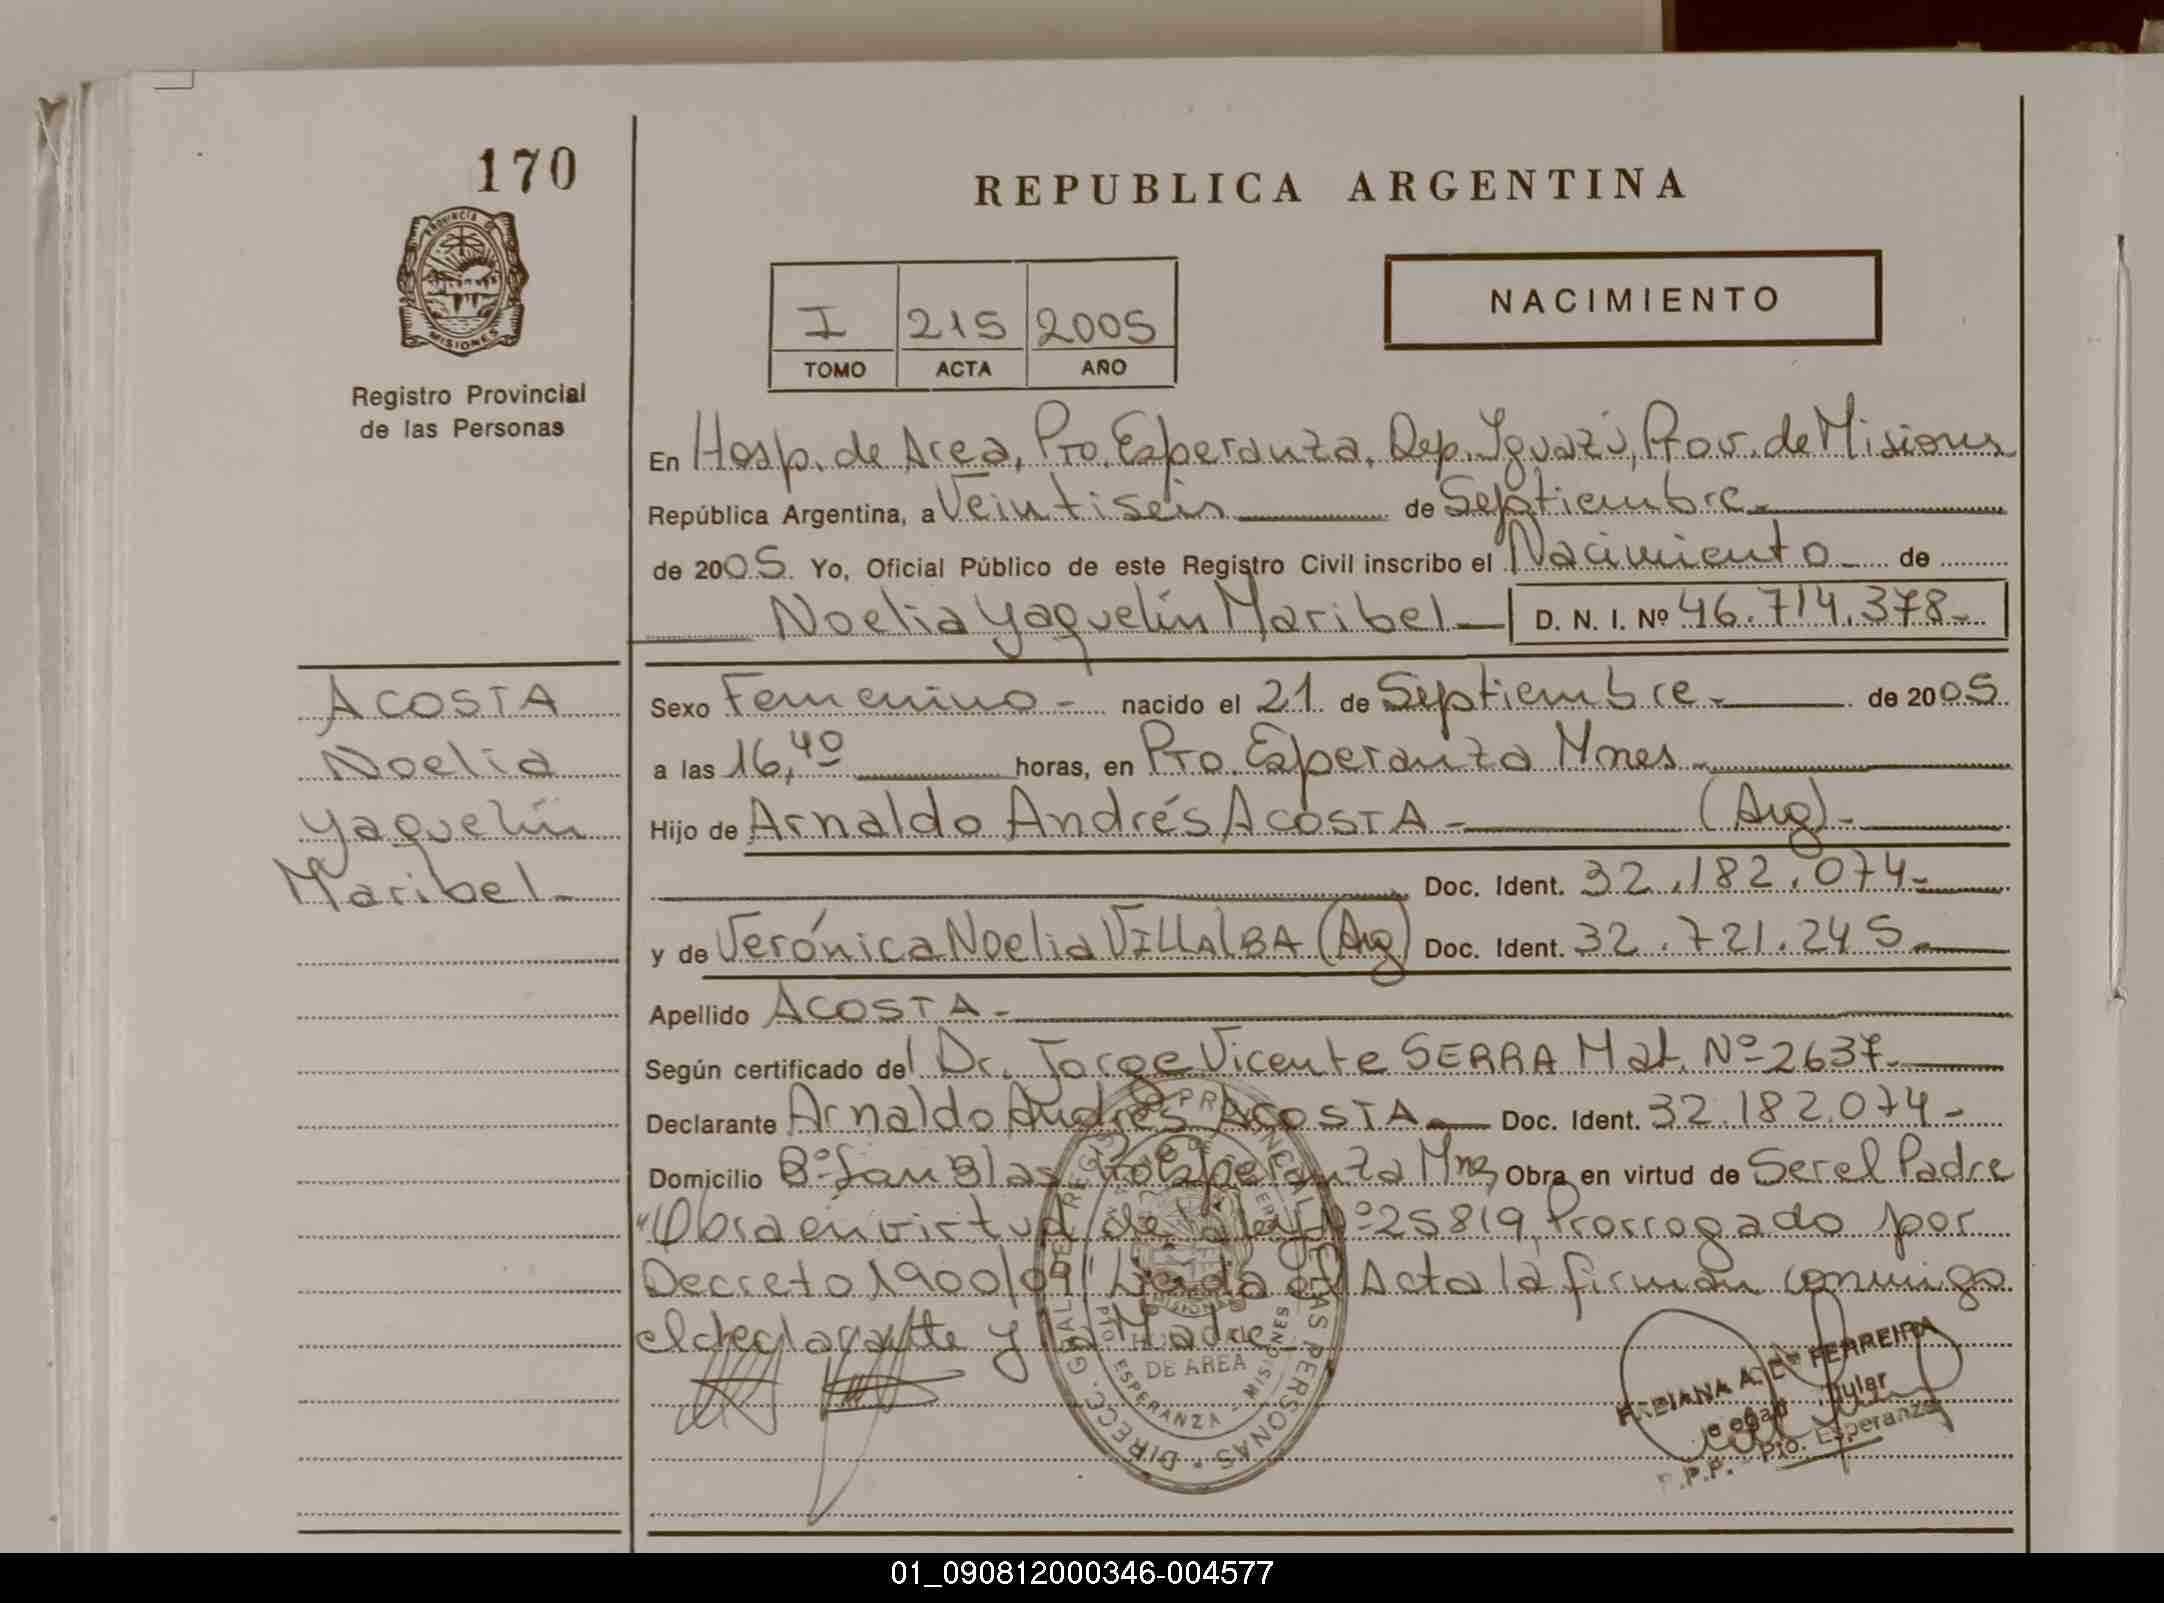 170
PROVINCIA DE
MISIONES
Registro Provincial
de las Personas
REPUBLICA ARGENTINA
I 215 2005
TOMO ACTA AÑO
NACIMIENTO
En Hosp. de Area, Pto. Esperanza, Dep. Iguazú, Prov. de Misiones
República Argentina, a Veintiseis de Septiembre
de 2005. Yo, Oficial Público de este Registro Civil inscribo el Nacimiento de
Noelia Yaquelín Maribel D. N. I. Nº 46.714.378
ACOSTA
Noelia
Yaquelín
Maribel
Sexo Femenino nacido el 21 de Septiembre de 2005
a las 16,40 horas, en Pto. Esperanza Mnes
Hijo de Arnaldo Andrés ACOSTA (Arg)
Doc. Ident. 32.182.074
y de Verónica Noelia VILLALBA (Arg) Doc. Ident. 32.721.245
Apellido ACOSTA
Según certificado del Dr. Jorge Vicente SERRA Mat. Nº 2637
Declarante Arnaldo Andrés ACOSTA Doc. Ident. 32.182.074
Domicilio Bº San Blas Pto Esperanza Mnes Obra en virtud de Ser el Padre
"Obra en virtud de la ley Nº 25819 Prorrogado por
Decreto 1900/04" Leida el Acta la firman conmigo
el declarante y la Madre
DE AREA
ESPERANZA - MISIONES
FABIANA A. FERREIRA
Pto. Esperanza
01_090812000346-004577